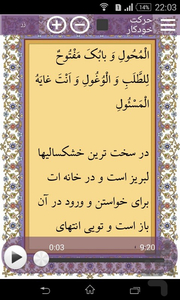 22:03
حرکت
خودکار
الْمُحُولِ وَ بابُکَ مَفْتُوحٌ
لِلطَّلَبِ وَ الْوُغُولِ وَ اَنْتَ غایَهُ
الْمَسْئُولِ
در سخت ترین خشکسالیها
لبریز است و در خانه ات
برای خواستن و ورود در آن
باز است و تویی انتهای
0:03
9:20